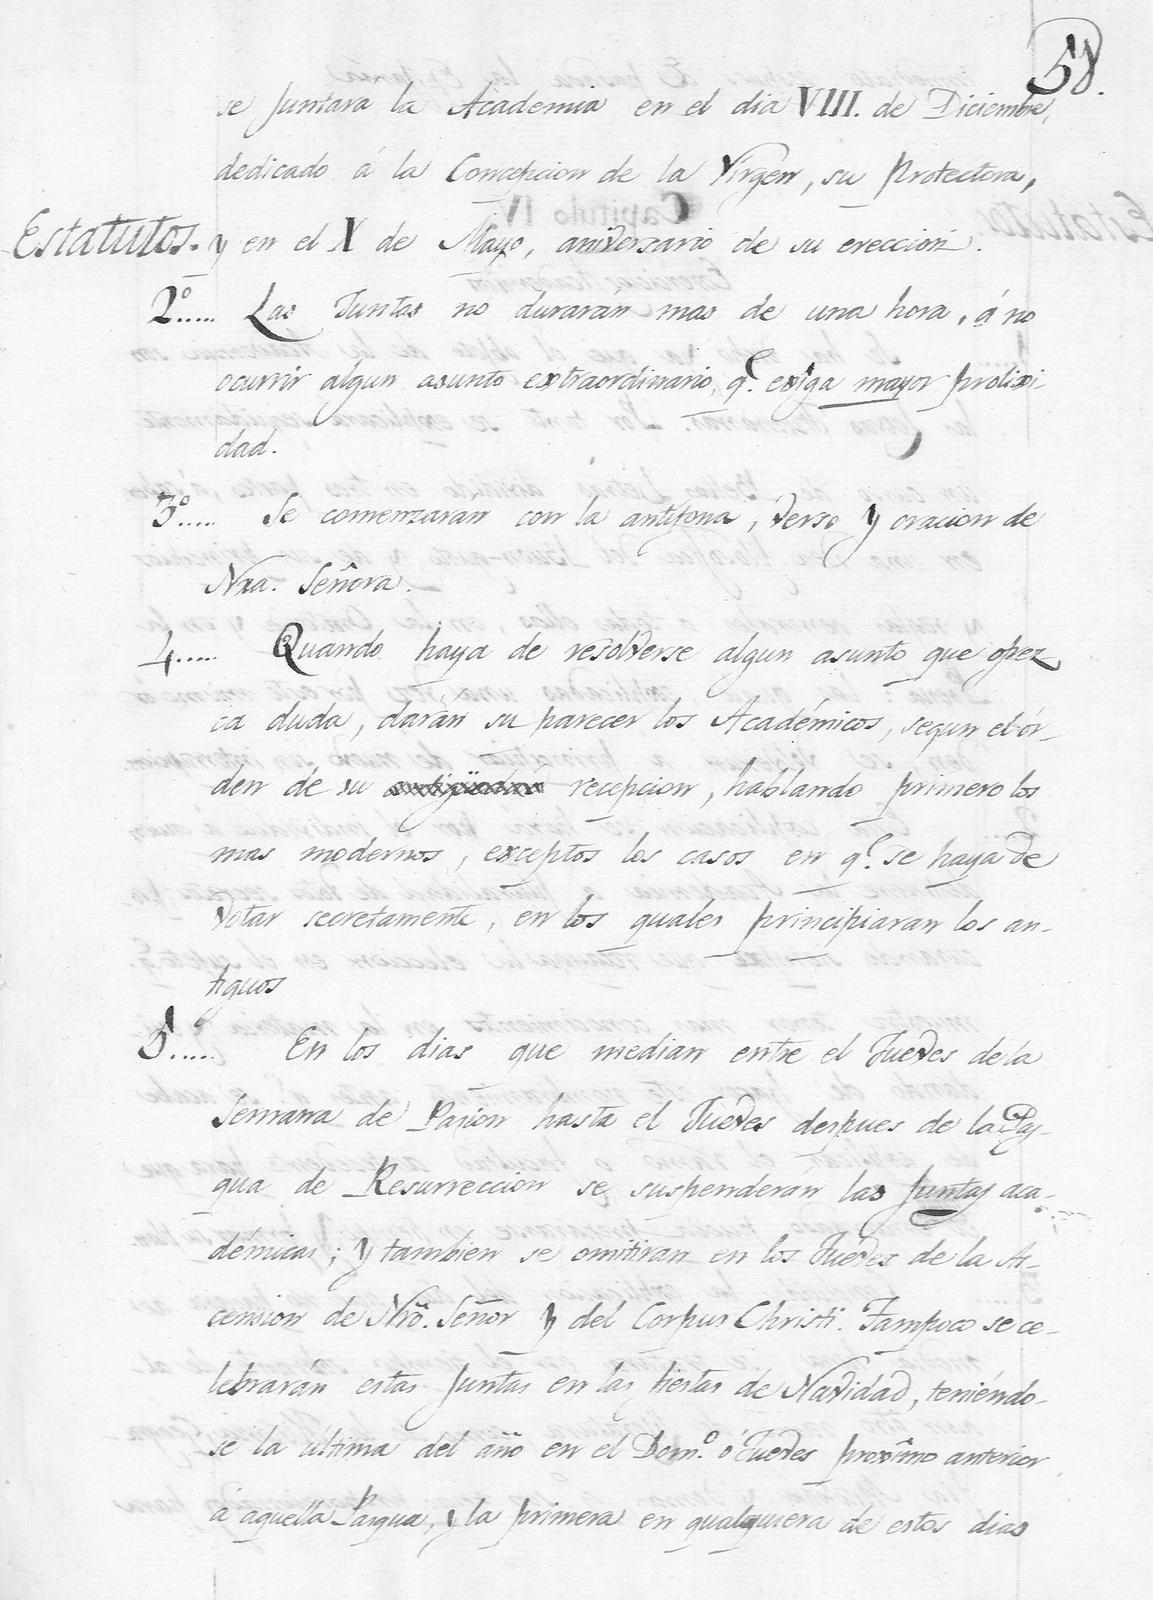 58.
se Juntara la Academia en el dia VIII. de Diciembre,
dedicado á la Concepcion de la Virgen, su Protectora,
Estatutos. y en el X de Mayo, aniversario de su ereccion.
2º..... Las Juntas no duraran mas de una hora, á no
ocurrir algun asunto extraordinario, q.e exija mayor prolixi-
dad.
3º..... Se comenzarán con la antifona, verso y oracion de
Nra. Señora.
4..... Quando haya de resolverse algun asunto que ofrez
ca duda, darán su parecer los Académicos, segun el ór-
den de su antigüedad recepcion, hablando primero los
mas modernos, exceptos los casos en q.e se haya de
votar secretamente, en los quales principiaran los an-
tiguos
5..... En los dias que median entre el Jueves de la
Semana de Pasion hasta el Jueves despues de la Pas-
qua de Resurreccion se suspenderán las Juntas aca-
démicas; y tambien se omitiran en los Jueves de la As-
cension de Nrô. Señor y del Corpus Christi. Tampoco se ce-
lebrarán estas Juntas en las fiestas de Navidad, teniéndo-
se la última del año en el Dom.º ó Jueves proxîmo anterior
á aquella Pasqua, y la primera en qualquiera de estos dias